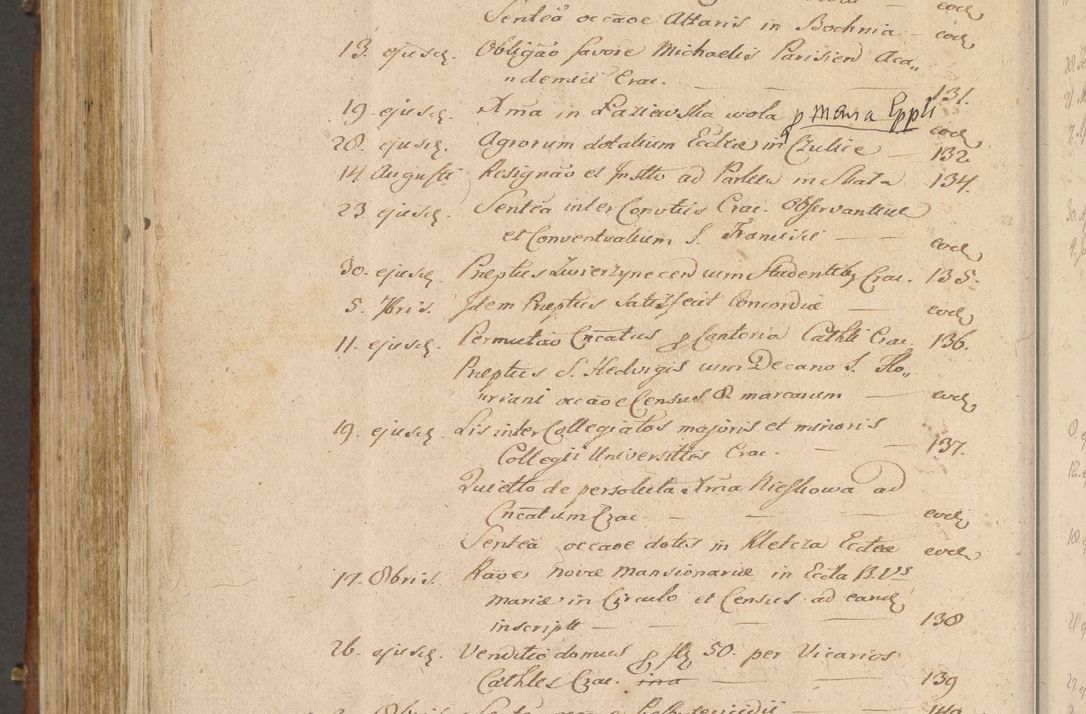 Sentea occāoe Altaris in Bochnia — eodę
13. ejusdę. Obligāo favore Michaelis Parisien Aca„
„demici Crac. — — 131.
19. ejusdę. Xma in Łaziewska wola p mensa Eppli eodę
28. ejusdę. Agrorum dotalium Eccliæ in Czulice — 132
14. Augusti Resignāo et Instto ad Parlem in Skała 134.
23. ejusdę. Sentēa inter Convtus Crac. Observantiæ
et Conventualium S. Francisci — — eodę
30. ejusdę. Præptus Zwierzynecen cum Studentibę Crac. 135.
5. 7bris. Idem Præptus satisfecit Concordiæ — eodę
11. ejusdę. Permutāo Cncatus p Cantoria Cathli Crac. 136.
Præptus S. Hedvigis cum Decano S. Flo„
„riani occāoe Census 8. marcarum — eodę
19. ejusdę. Lis inter Collegiatos majoris et minoris
Collegii Universittis Crac. — — 137.
Quietto de persoluta Xma Kieskowa ad
Cncatum Crac — — — eodę
Sentēa occāoe dotis in Kletcza Eccleæ eodę
17. 8bris. Rāoes novæ Mansionariæ in Eccla B.V.
Mariæ in Circulo et Census ad eandę
inscripti — — — 138
26. ejusdę. Venditio domus p flę 50. per Vicarios
Cathles Crac. — — 139